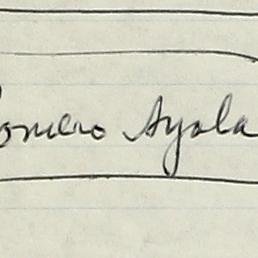 Romero Ayala